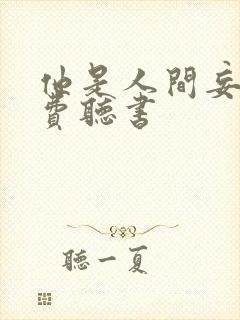 他是人間妄
費聽書
聽一夏